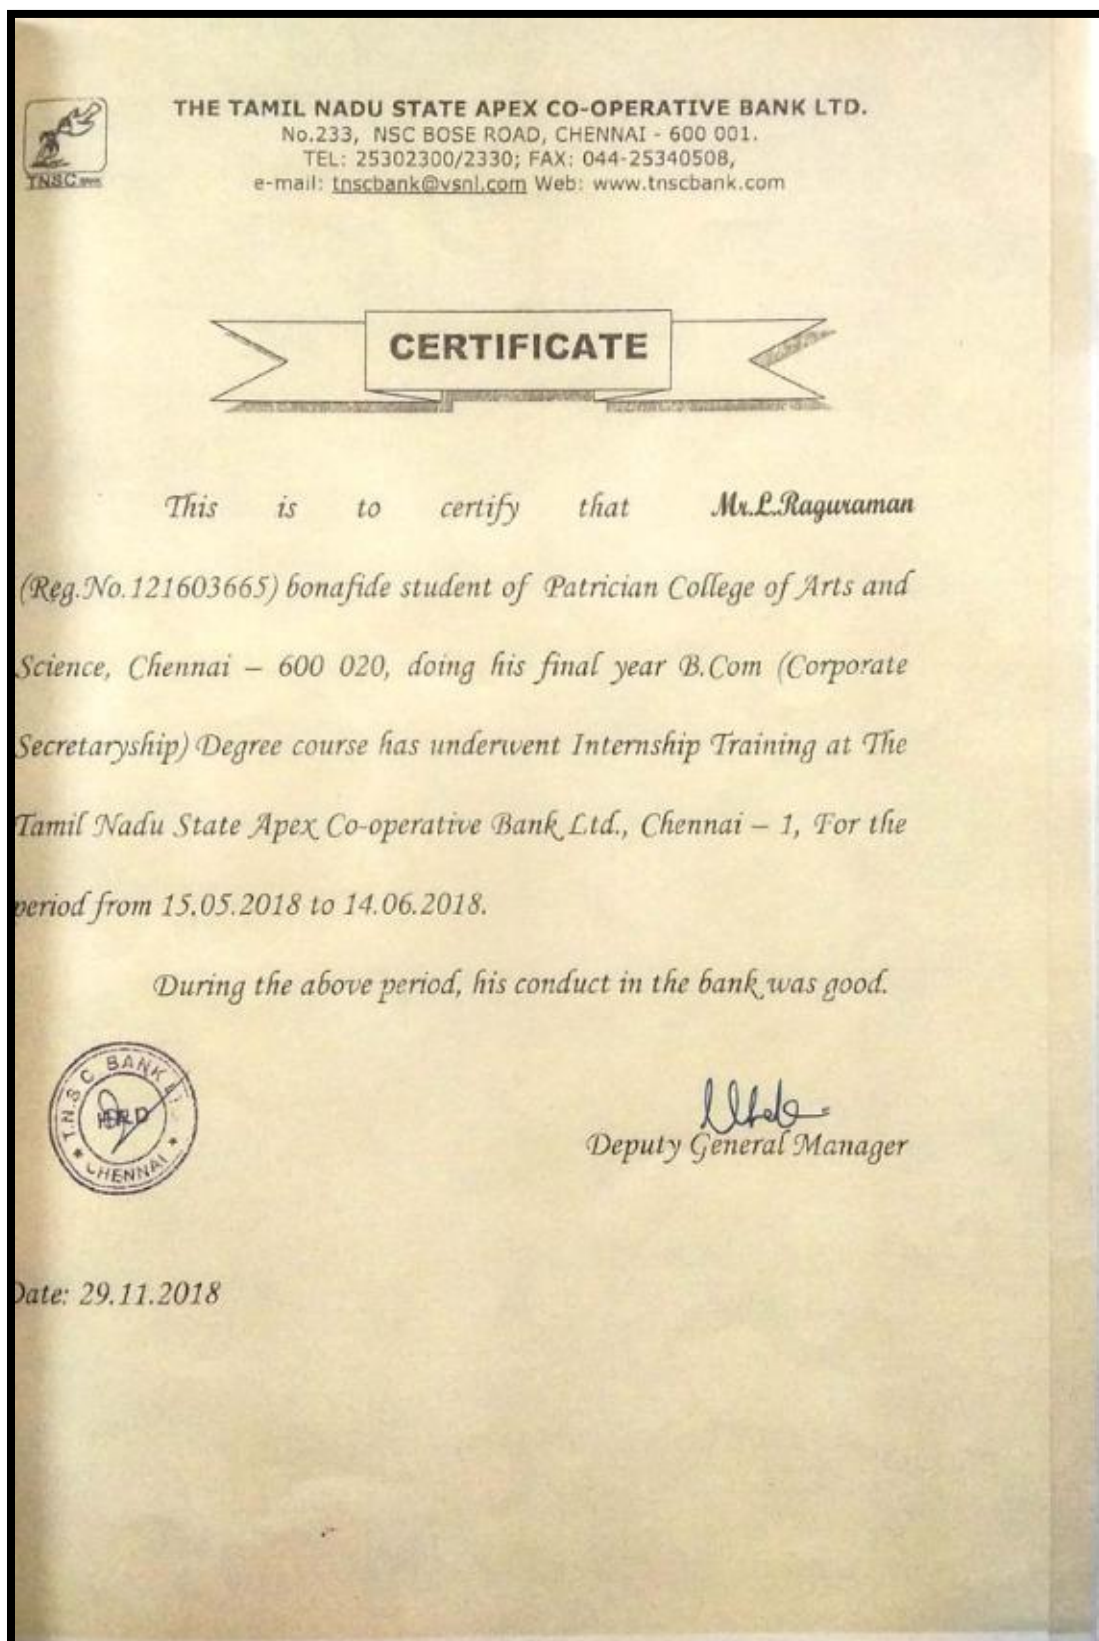 THE TAMIL NADU STATE APEX CO-OPERATIVE BANK LTD.
No.233, NSC BOSE ROAD, CHENNAI - 600 001.
TEL: 25302300/2330; FAX: 044-25340508,
e-mail: tnscbank@vsnl.com Web: www.tnscbank.com
TNSC
CERTIFICATE
This is to certify that Mr.L.Raguraman
(Reg.No.121603665) bonafide student of Patrician College of Arts and
Science, Chennai – 600 020, doing his final year B.Com (Corporate
Secretaryship) Degree course has underwent Internship Training at The
Tamil Nadu State Apex Co-operative Bank Ltd., Chennai – 1, For the
period from 15.05.2018 to 14.06.2018.
During the above period, his conduct in the bank was good.
T.N.S.C BANK
HRD
CHENNAI
Deputy General Manager
Date: 29.11.2018